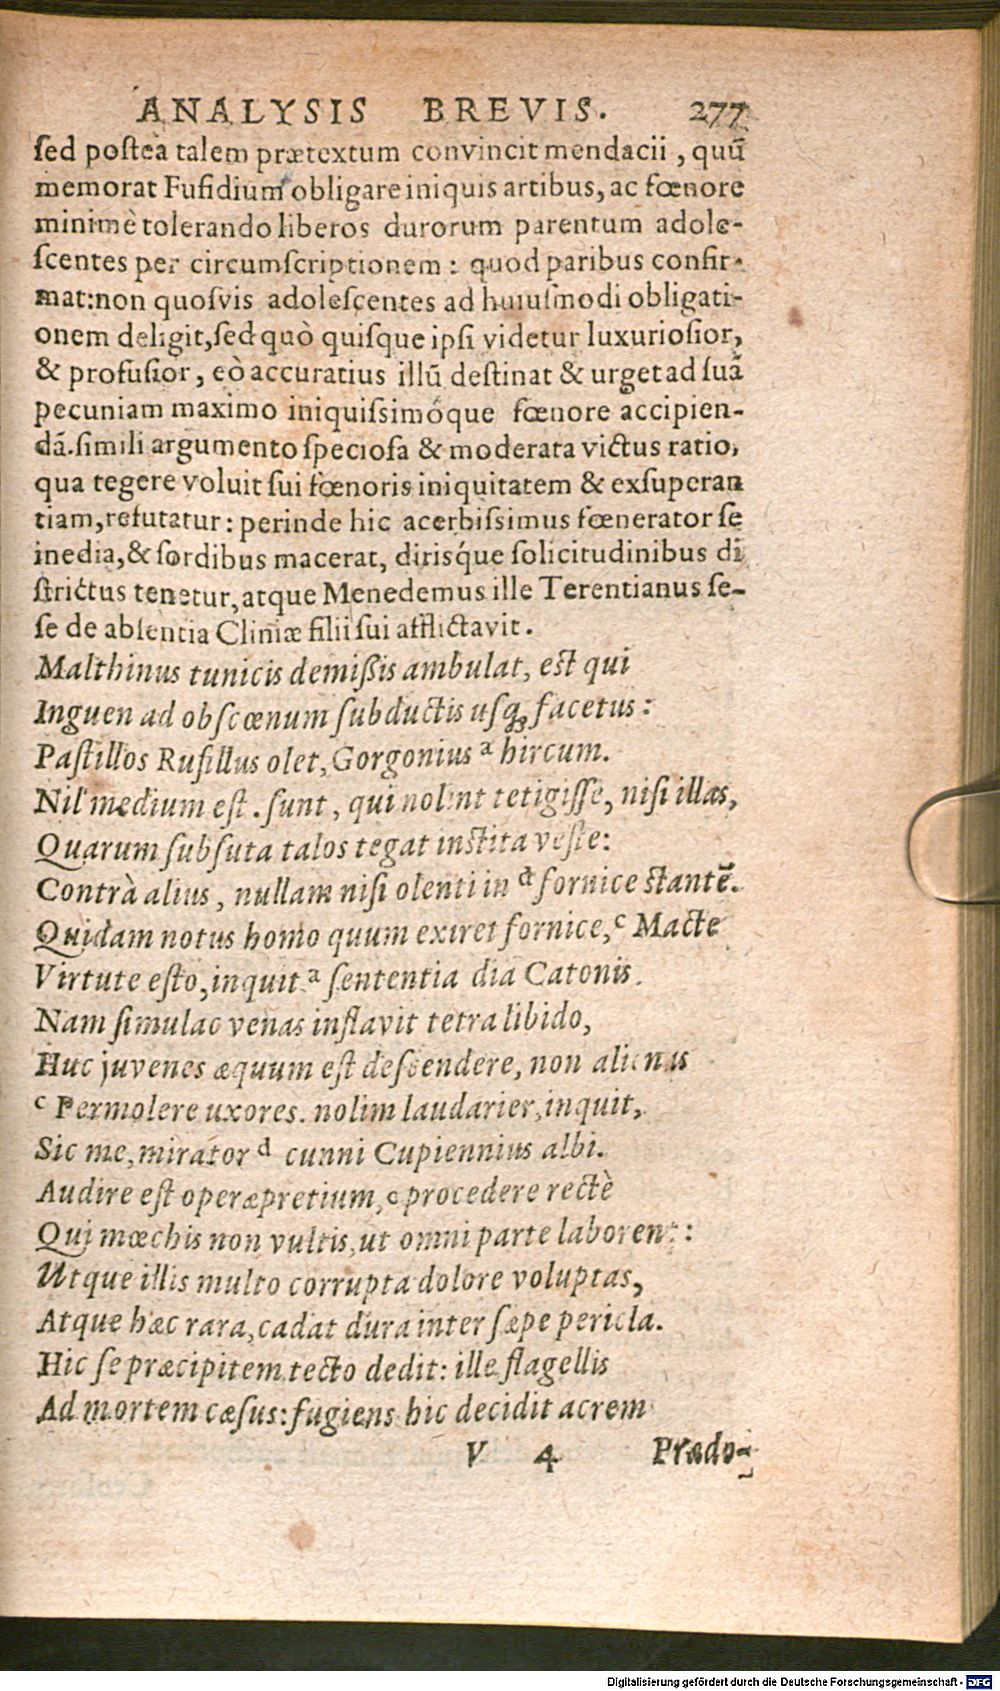 ANALYSIS BREVIS. 277
sed posteà talem prætextum convincit mendacii, quū
memorat Fufidium obligare iniquis artibus, ac fœnore
minimè tolerando liberos durorum parentum adole-
scentes per circumscriptionem: quod paribus confir-
mat:non quosvis adolescentes ad huiusmodi obligati-
onem deligit,sed quò quisque ipsi videtur luxuriosior,
& profusior, eò accuratius illū destinat & urget ad suā
pecuniam maximo iniquissimóque fœnore accipien-
dā.simili argumento speciosa & moderata victus ratio,
qua tegere voluit sui fœnoris iniquitatem & exsuperan
tiam,refutatur: perinde hic acerbissimus fœnerator se
inedia,& sordibus macerat, dirisq́ue solicitudinibus di
strictus tenetur,atque Menedemus ille Terentianus se-
se de absentia Cliniæ filii sui afflictavit.
Malthinus tunicis demißis ambulat, est qui
Inguen ad obscœnum subductis usq; facetus:
Pastillos Rufillus olet, Gorgonius a hircum.
Nil medium est. sunt, qui nolint tetigisse, nisi illas,
Quarum subsuta talos tegat instita veste:
Contrà alius, nullam nisi olenti in d fornice stantē.
Quidam notus homo quum exiret fornice, c Macte
Virtute esto, inquit a sententia dia Catonis.
Nam simulac venas inflavit tetra libido,
Huc juvenes æquum est descendere, non alienas
c Permolere uxores. nolim laudarier, inquit,
Sic me, mirator d cunni Cupiennius albi.
Audire est operæpretium, c procedere rectè
Qui mœchis non vultis, ut omni parte laborent:
Utque illis multo corrupta dolore voluptas,
Atque hæc rara, cadat dura inter sæpe pericla.
Hic se præcipitem tecto dedit: ille flagellis
Ad mortem cæsus: fugiens hic decidit acrem
V 4 Prædo-
Digitalisierung gefördert durch die Deutsche Forschungsgemeinschaft - DFG